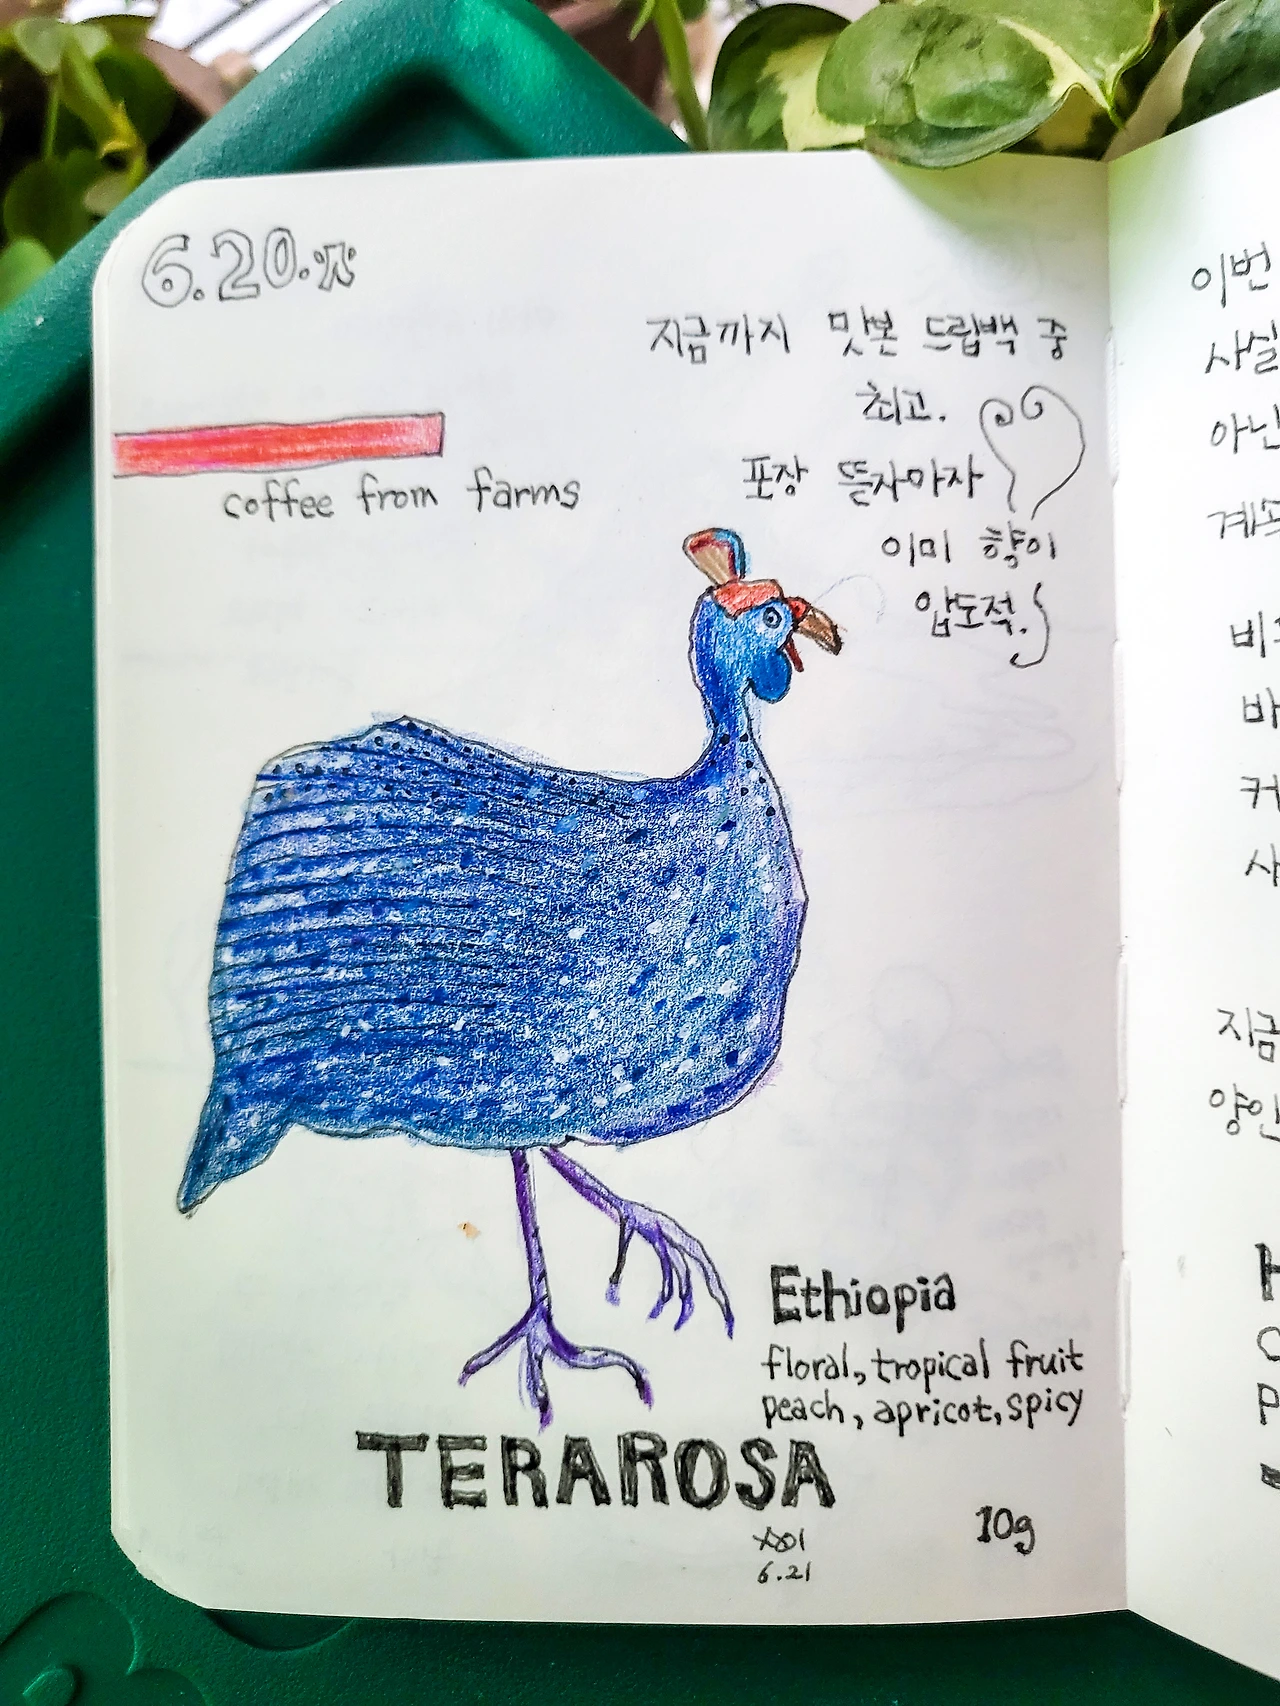 6.20.火
지금까지 맛본 드립백 중
최고.
포장 뜯자마자
이미 향이
압도적.
coffee from farms
Ethiopia
floral, tropical fruit
peach, apricot, spicy
TERAROSA
10g
6.21
이번
사실
아닌
계속
바
커
사
지금
양인